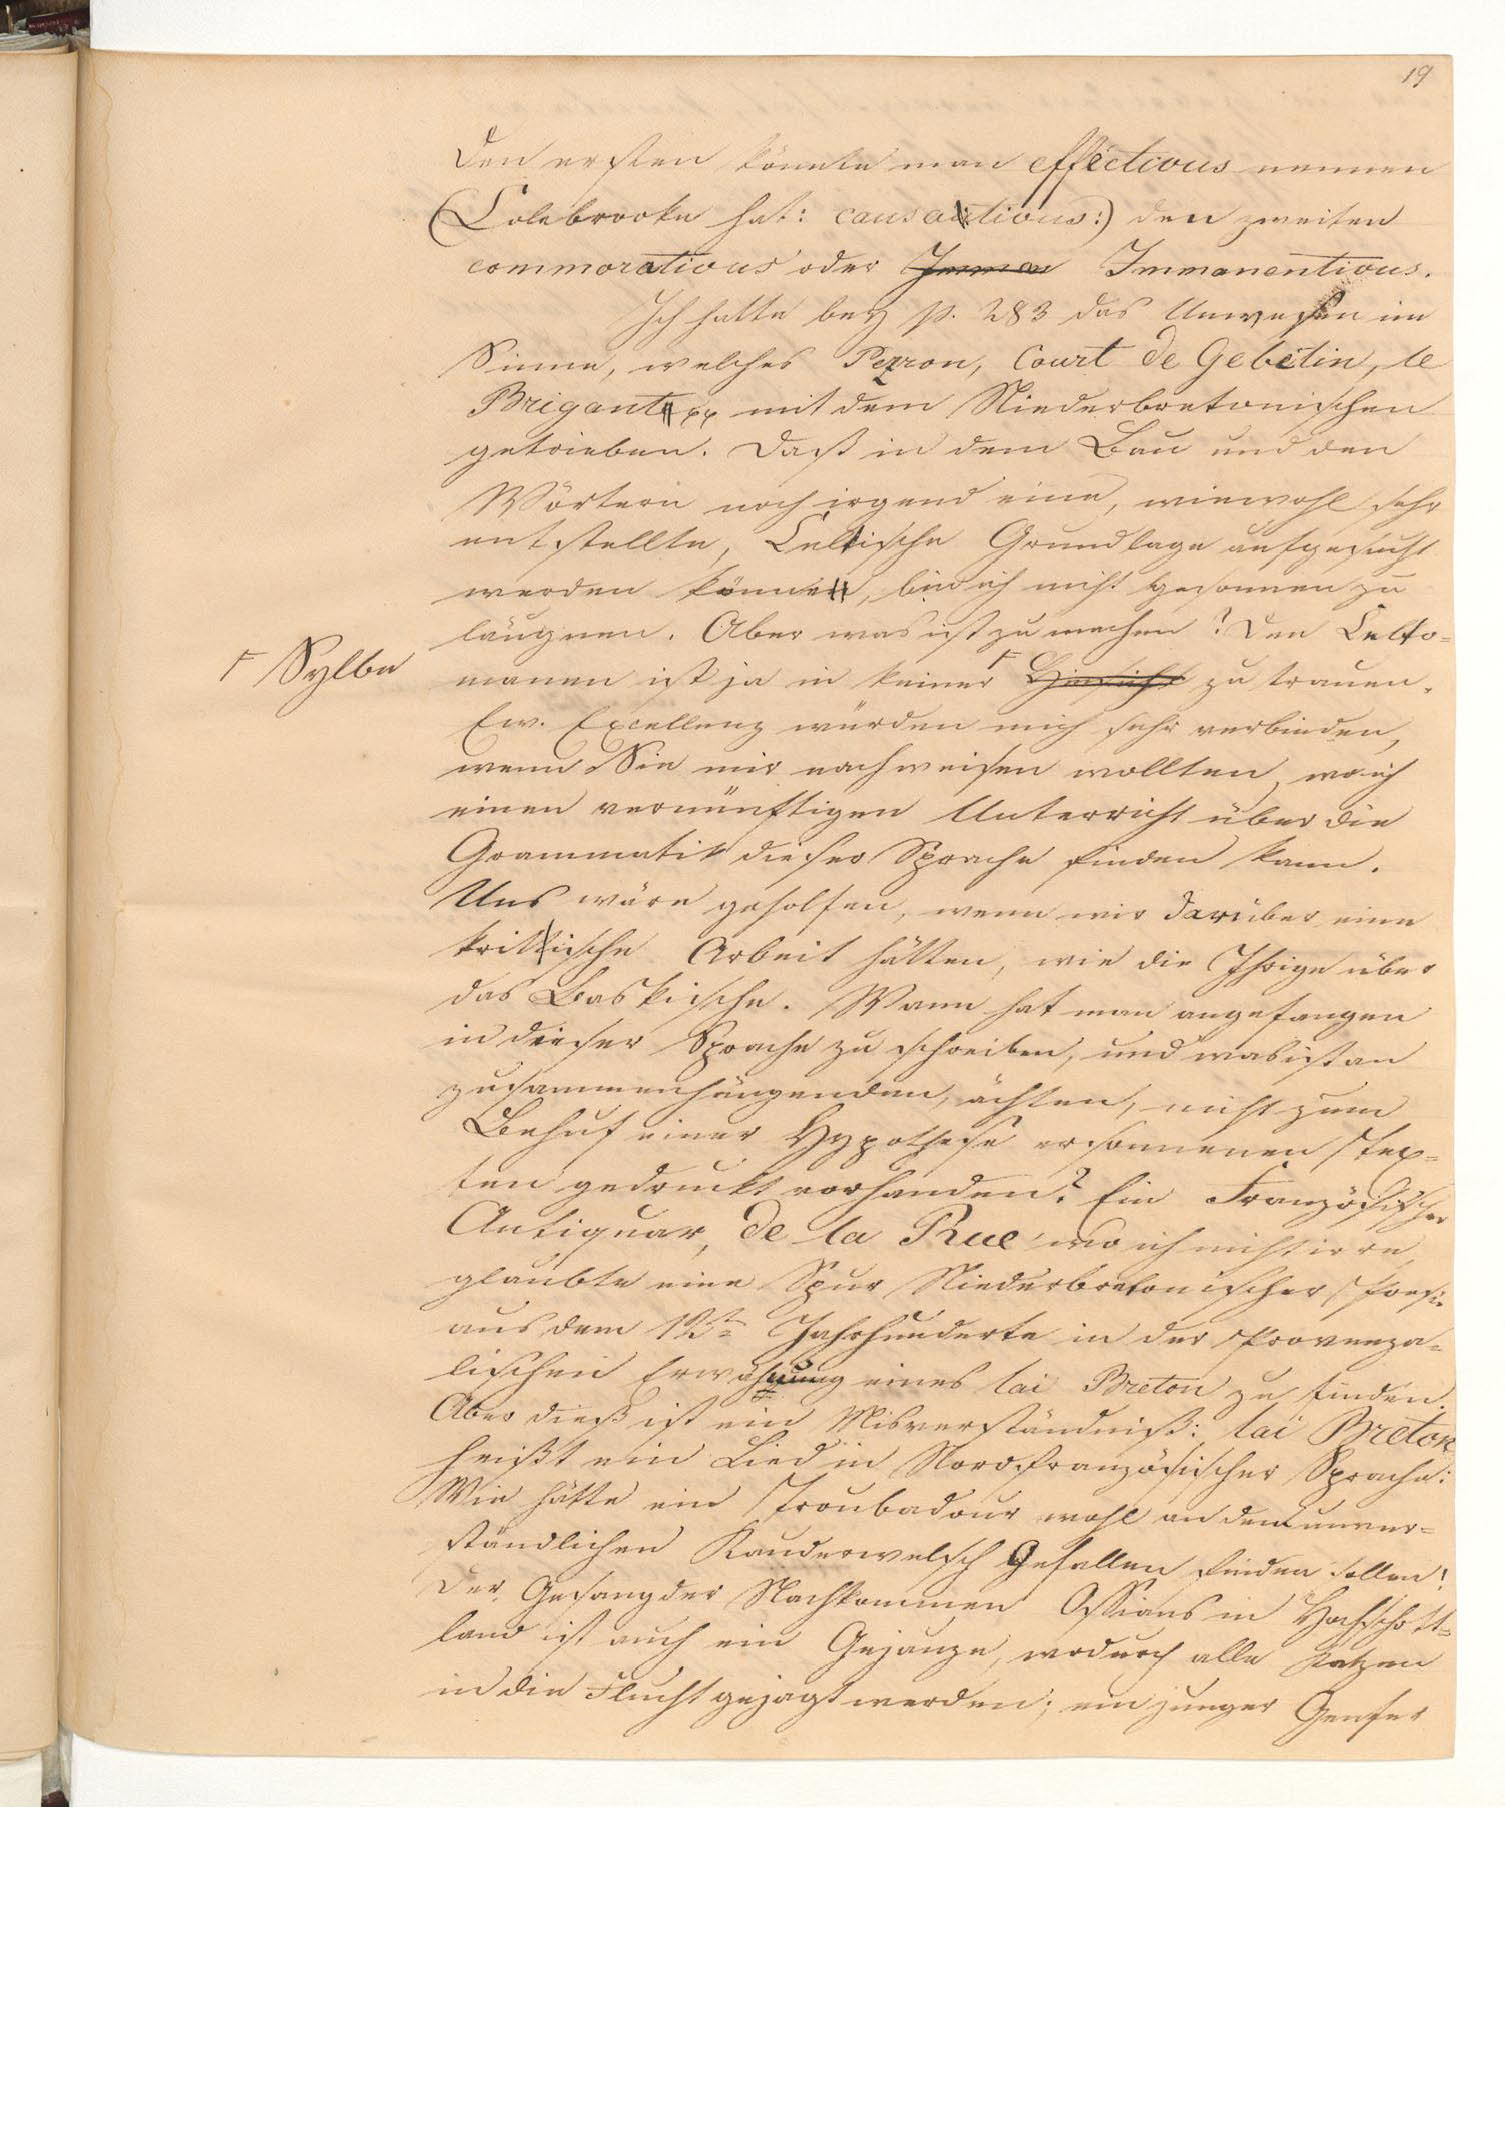 19
Den ersten könnte man effectivus nennen
(Colebrooke hat: causativus:) den zweiten
commorativus oder Imman Immanentivus.
Ich hatte bey p. 283 das Unwesen im
Sinne, welches Pezron, Court de Gebelin, le
Brigant pp mit dem Niederbretonischen
getrieben. Daß in dem Bau und den
Wörtern noch irgend eine, wiewohl sehr
entstellte, Celtische Grundlage aufgesucht
werden könne, bin ich nicht gesonnen zu
läugnen. Aber was ist zu machen? Den Celto-
manen ist ja in keiner Hinsicht zu trauen.
Sylbe
Ew. Excellenz würden mich sehr verbinden,
wenn Sie mir nachweisen wollten, wo ich
einen vernünftigen Unterricht über die
Grammatik dieser Sprache finden kann.
Uns wäre geholfen, wenn wir darüber eine
kritische Arbeit hätten, wie die Ihrige über
das Baskische. Wann hat man angefangen
in dieser Sprache zu schreiben, und was ist an
zusammenhängenden, ächten, nicht zum
Behuf einer Hypothese ersonnenen Tex-
ten gedruckt vorhanden? Ein Französischer
Antiquar, de la Rue wo ich nicht irre,
glaubte eine Spur Niederbretonischer Poesie
aus dem 12t Jahrhunderte in der Provenza-
lischen Erwähnung eines lai Breton zu finden.
Aber dieß ist ein Misverständniß: lai Breton
heißt ein Lied in Nordfranzösischer Sprache:
Wie hätte ein Troubadour wohl an dem unver-
ständlichen Kauderwelsch Gefallen finden sollen!
Der Gesang der Nachkommen Ossians in Hochschott-
land ist auch ein Gejauze, wodurch alle Katzen
in die Flucht gejagt werden; ein junger Genfer